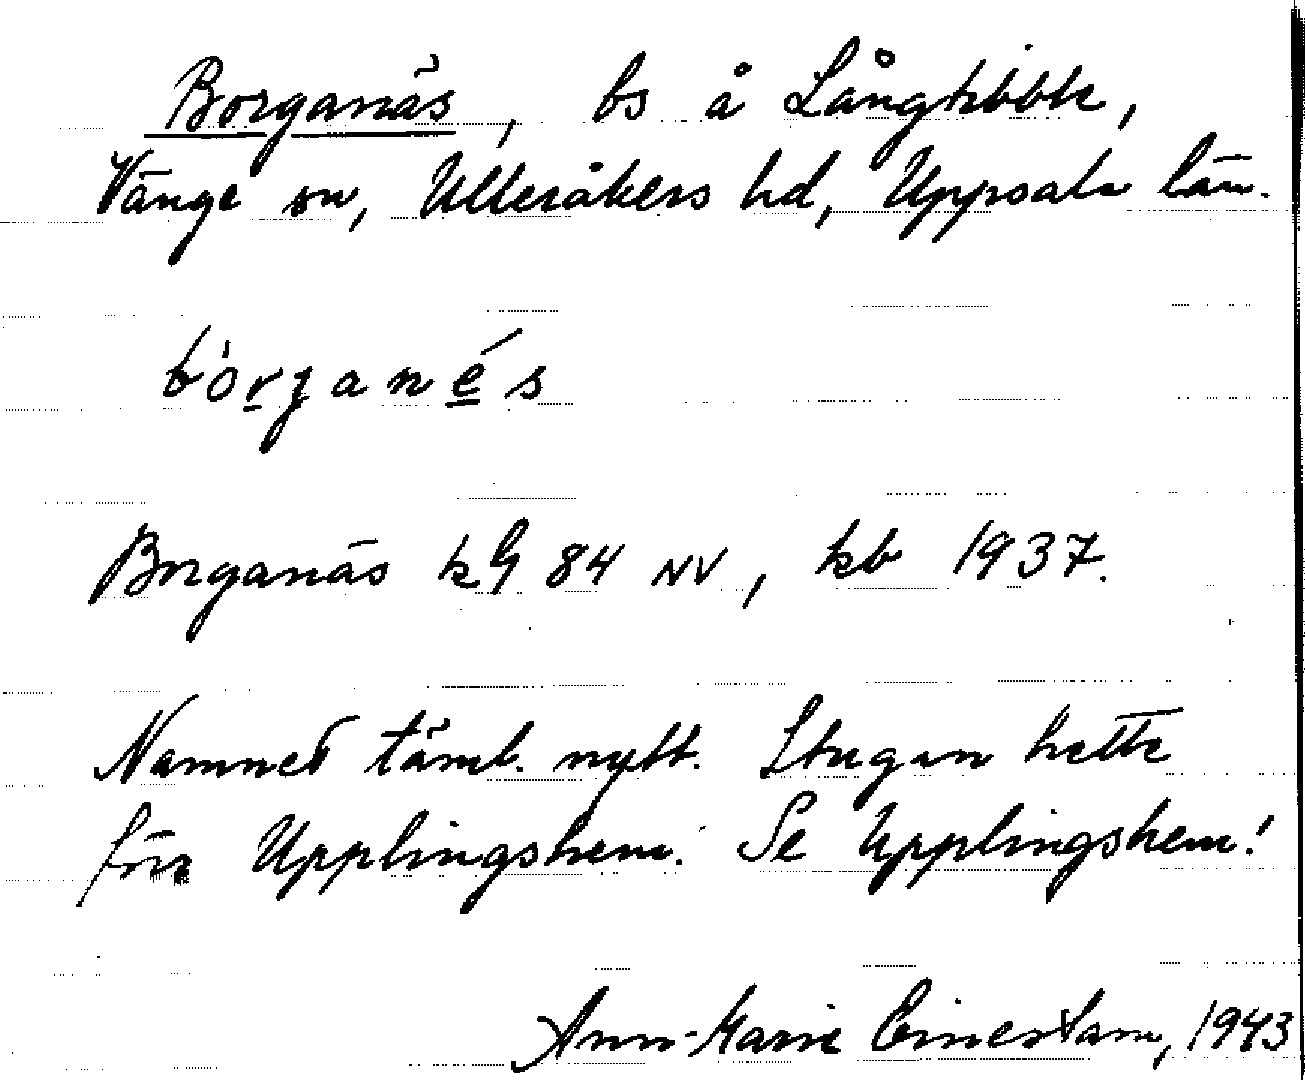 Borganäs, bs å Långtibble,
Vänge sn, Ulleråkers hd, Uppsala län.
bòrganés
Borganäs kG 84 NV, kb 1937.
Namnet täml. nytt. Stugan hette
förr Upplingshem. Se Upplingshem!
Ann-Marie Einerstam, 1943